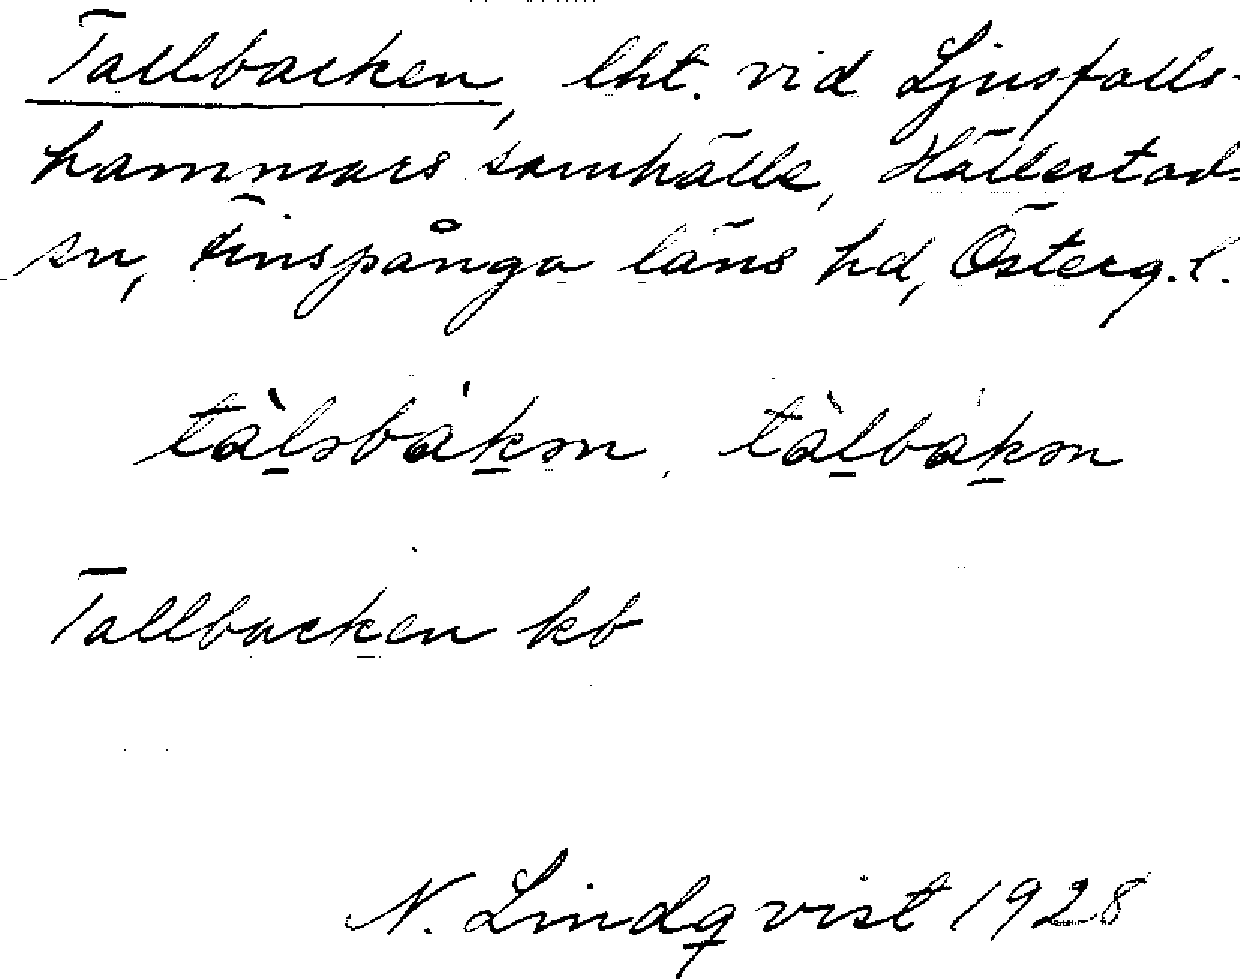 Tallbacken, lht. vid Ljusfalls-
hammars samhälle, Hällestads
sn, Finspånga läns hd, Österg. l.
tàlsbákən, tàlbákən
Tallbacken kb
N. Lindqvist 1928